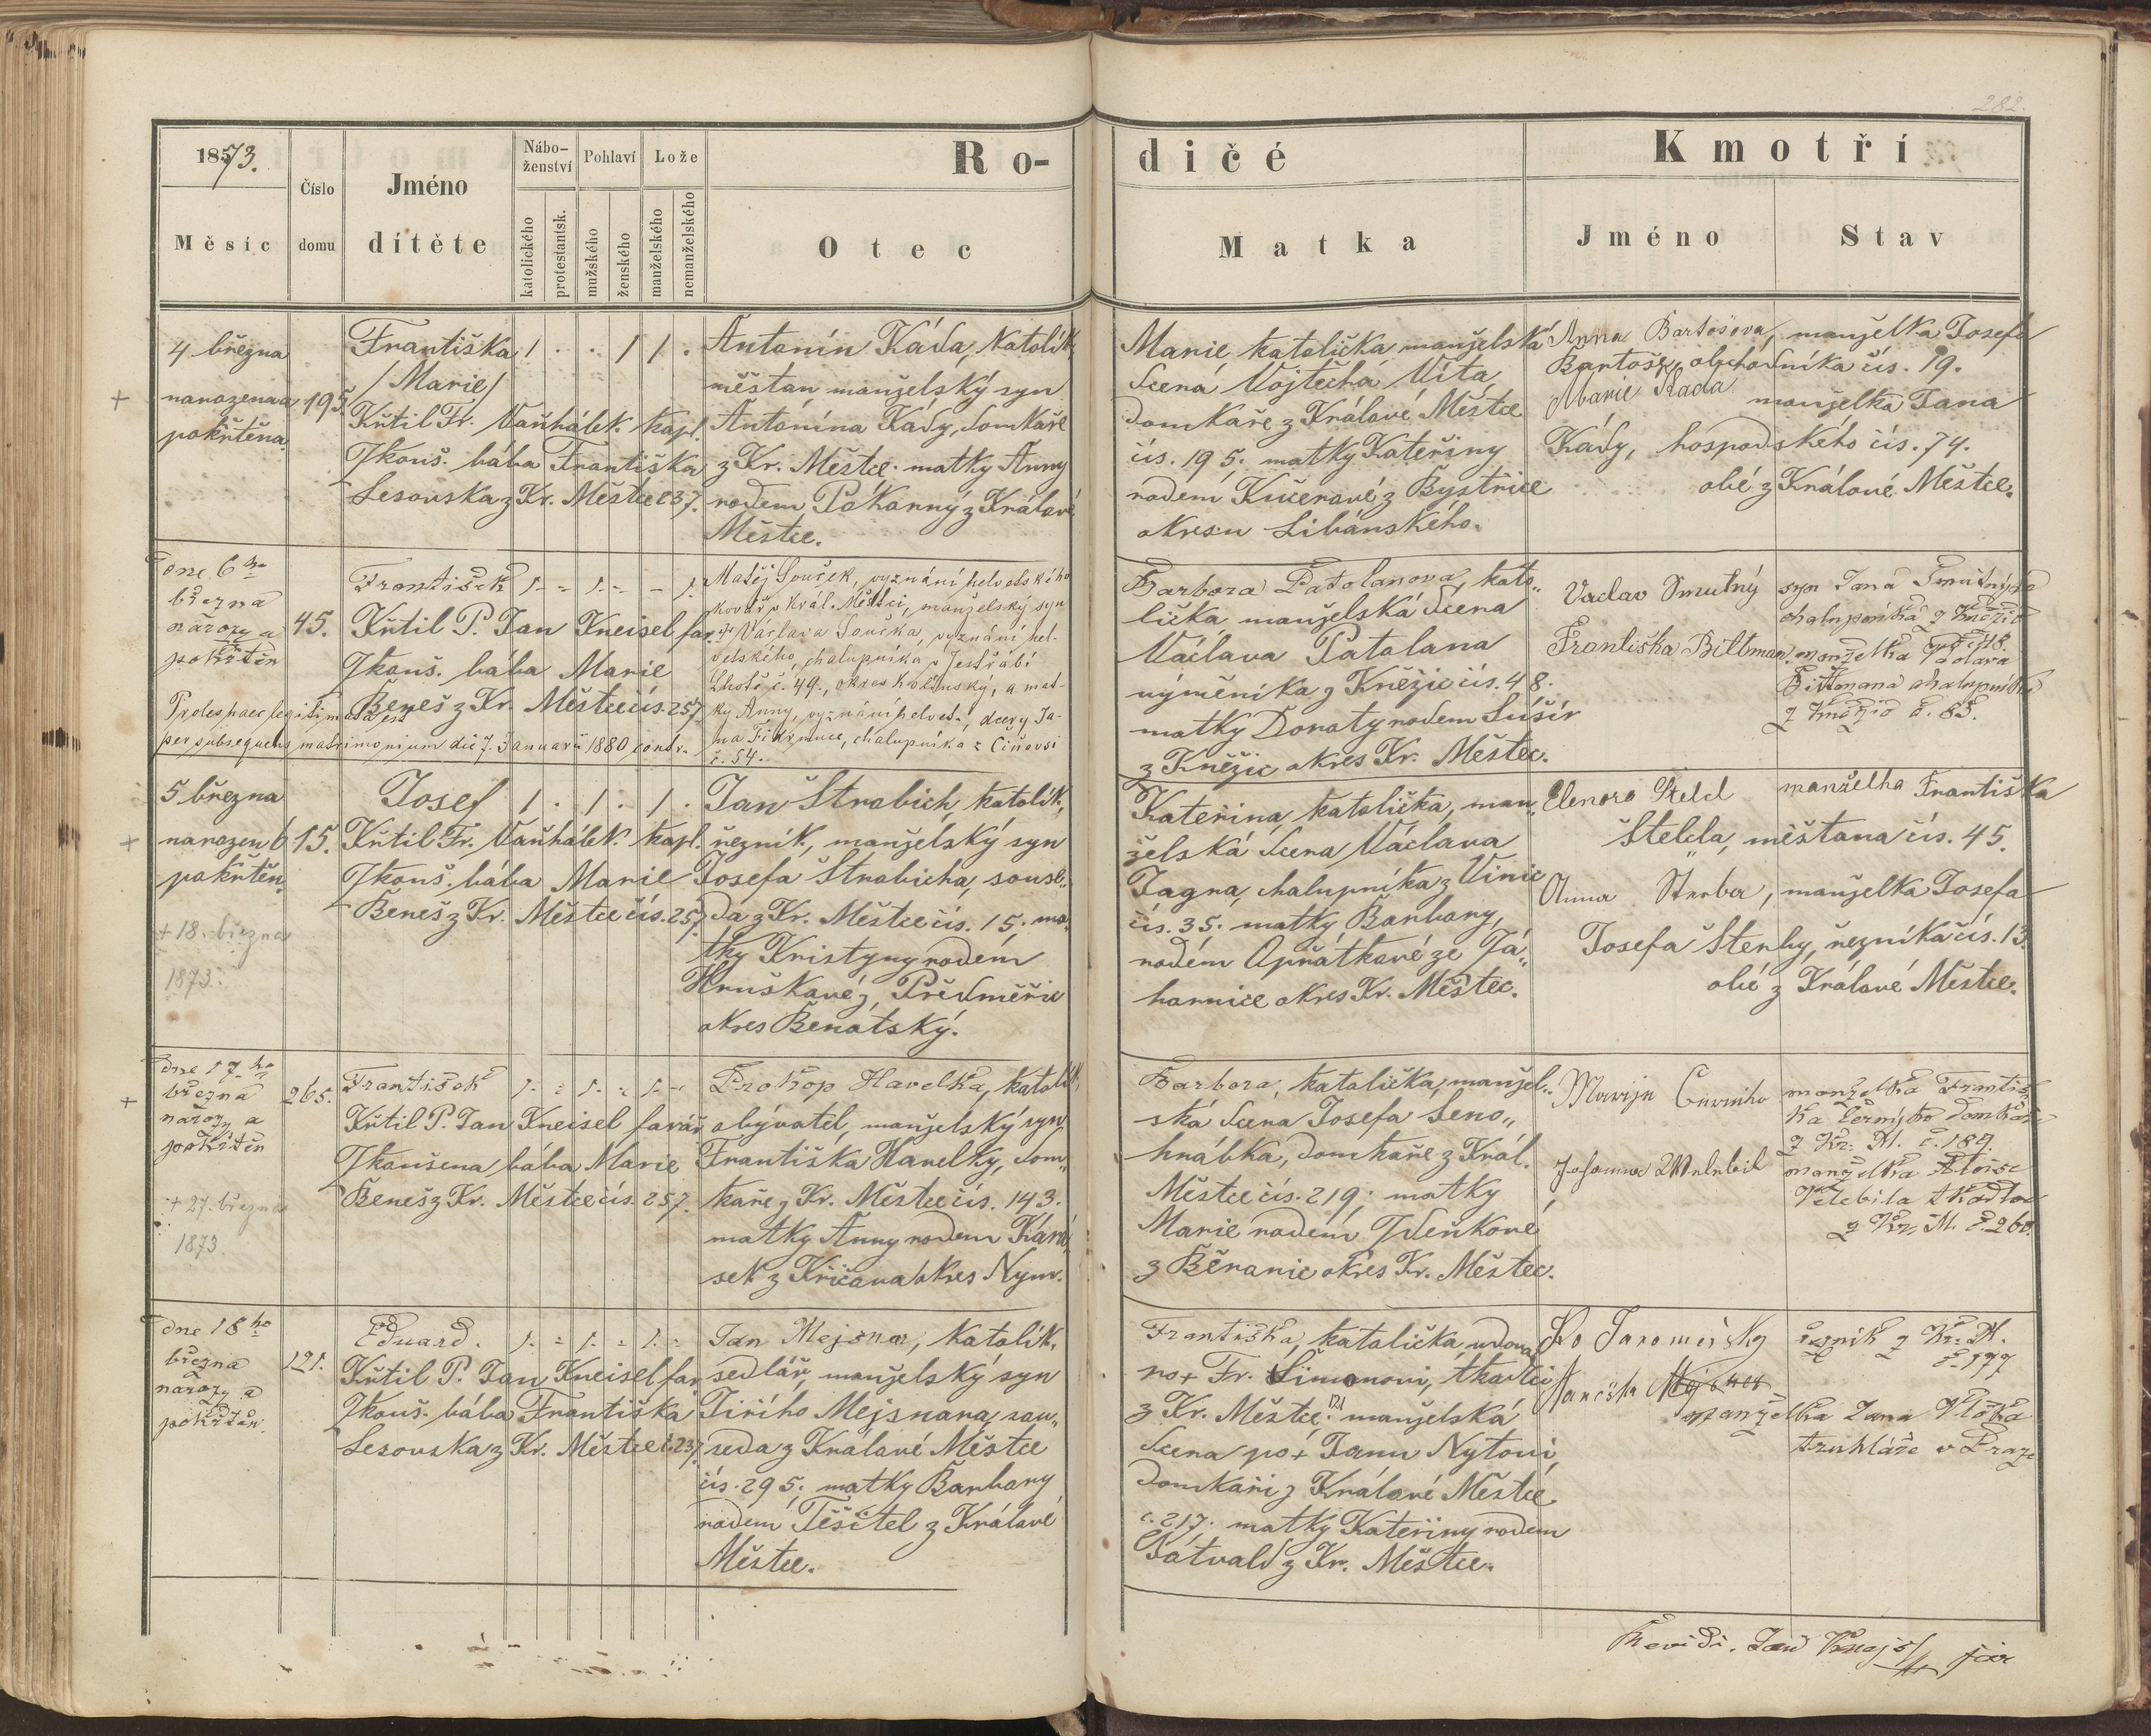 282.
1873.
Měsíc
Číslo
domu
Jméno
dítěte
Nábo-
ženství
katolického
protestantsk.
Pohlaví
mužského
ženského
Lože
manželského
nemanželského
Ro-
Otec
dičé
Matka
Kmotří
Jméno
Stav
4 března
narozena a
pokřtěna
195.
Františka 1 . . 1 1 .
/Marie/
Křtil Fr. Vaňhálek kapl.
Zkouš. bába Františka
Lesovska z Kr. Městce 237.
Antonín Káda, katolík,
měštan, manželský syn
Antonína Kády, domkaře
z Kr. Městce matky Anny
rodem Pokorný z Králové
Městce.
Marie katolička manželská
dcera Vojtěcha Víta,
domkaře z Králové Městce
čís. 195. matky Kateřiny
rodem Kučerové z Bystřice
okresu Libánského.
Anna Bartošova, manželka Josefa
Bartoše, obchodníka čís. 19.
Marie Kada manželka Jana
Kády, hospodského čís. 74.
obě z Králové Městce.
Dne 6ho
března
narozen a
pokřtěn
45.
František 1. - 1. - - 1.
Křtil P. Jan Kneisel far.
Zkouš. bába Marie
Beneš z Kr. Městce čís. 257.
Proles haec legitimata est
per subsequens matrimonium die 7. Januarii 1880 contr.
Matěj Souček, vyznání helvetského
kovář v Král. Městci, manželský syn
Václava Součka, vyznání hel-
vetského, chalupníka v Jestřábí
Lhotě č. 49., okres kolínský, a mat-
ky Anny, vyznání helvet., dcery Ja-
na Fidrmuce, chalupníka z Činěvsi
č. 54.
Barbora Patolanova, kato-
lička manželská dcera
Václava Patolana
výměníka z Kněžic čís. 48.
matky Doroty rodem Sušír
z Kněžic okres Kr. Městec.
Vaclav Smutný syn Jana Smutnýho
chalupníka z Kněžic
č. 48.
Františka Bittman manželka
Bittmana chalupníka
z Kněžic č. 85.
5 března
narozen 6
pokřtěn.
15.
+ 18. března
1873.
Josef 1 . 1 . 1 .
Křtil Fr. Vaňhálek kapl.
Zkouš. bába Marie
Beneš z Kr. Městce čís. 257
Jan Štrobich, katolík,
řezník, manželský syn
Josefa Štrobicha, souse-
da z Kr. Městce čís. 15, ma-
tky Kristyny rodem
Hruškové z Předměřic
okres Benátský.
Kateřina, katolička, man-
želská dcera Václava
Jagra, chalupníka z Vinic
čís. 35. matky Barbory,
rodem Opřátkové ze Zá-
hornice okres Kr. Městec.
Elenora Steld manželka Františka
Štelda, měštana čís. 45.
Anna Šterba, manželka Josefa
Josefa Šterby, řezníka čís. 13
obě z Králové Městce.
Dne 17ho
března
narozen a
pokřtěn
265.
+ 27. března
1873.
František 1. - 1. - 1. -
Křtil P. Jan Kneisel farář
Zkoušena bába Marie
Beneš z Kr. Městce čís. 257.
Prokop Havelka, katolík,
obývatel, manželský syn
Františka Havelky, dom-
kaře z Kr. Městce čís. 143.
matky Anny rodem Kará-
sek z Křičova okres Nym.
Barbora, katolička, manžel-
ská dcera Josefa Seno-
hrábka, domkaře z Král.
Městce čís. 219; matky
Marie rodem Zdeňkové
z Běrunic okres Kr. Městec.
manželka Františ-
ka domkáře
z Kr. M. č. 189
manželka Aloise
Velebila tkadlce
z Kr. M. č. 260.
Dne 18ho
března
narozen a
pokřtěn.
121.
Eduard. 1. - 1. - 1. -
Křtil P. Jan Kneisel far.
Zkouš. bába Františka
Lesovska z Kr. Městce č. 237.
Jan Mejsnar, katolík,
sedlář, manželský syn
Jiřího Mejsnara, sou-
seda z Králové Městce
čís. 295. matky Barbory
rodem Těšitel z Králové
Městce.
Františka, katolička, vdova
po + Fr. Šimonovi, tkadlci
z Kr. Městce. 121 manželská
dcera po + Janu Nytovi,
domkaři z Králové Městce
č. 217. matky Kateřiny rodem
Potvald z Kr. Městce.
Jaroměřsky řezník z Kr. M.
č. 177
manželka Jana
truhláře v Praze
Revidi. Jan